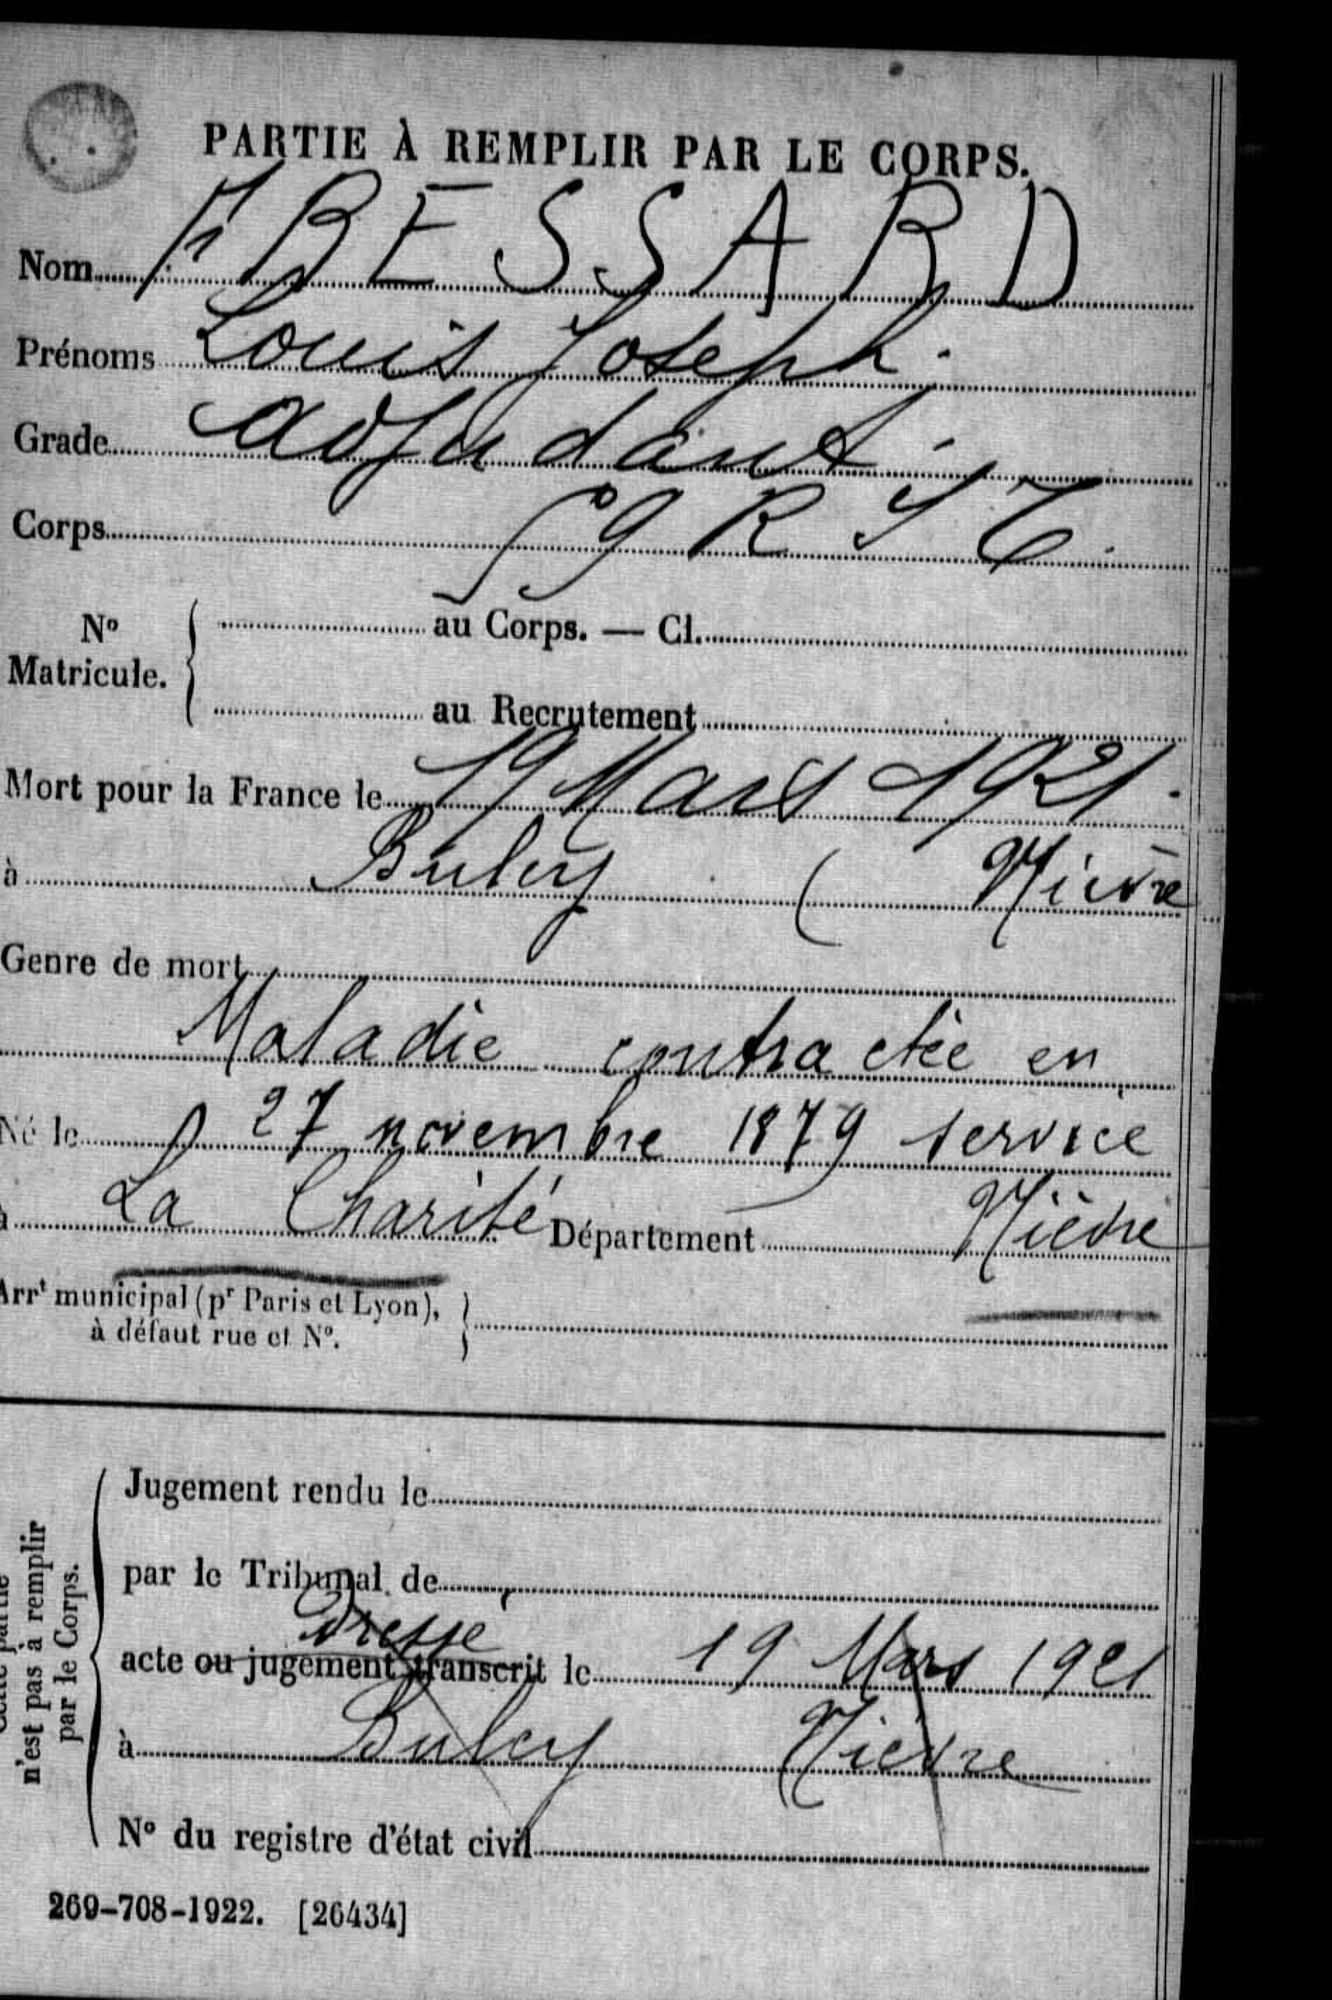 PARTIE À REMPLIR PAR LE CORPS.
Nom FRESSARD
Prénoms Louis Joseph.
Grade adjudant.
Corps 59 R I T.
No
Maticule. { au Corps. — Cl.
au Recrutement
Mort pour la France le 19 Mars 1921.
à Bulcy ( Nièvre
Genre de mort
Maladie contractée en
Né le 27 novembre 1879 service
à La Charité Département Nièvre
Arrt municipal (pr Paris et Lyon), }
à défaut rue et No.
Cette partie
n'est pas à remplir
par le Corps.
Jugement rendu le
par le Tribunal de
dressé
acte ou jugement transcrit le 19 Mars 1921
à Bulcy Nièvre
No du registre d'état civil
269-708-1922. [26434]